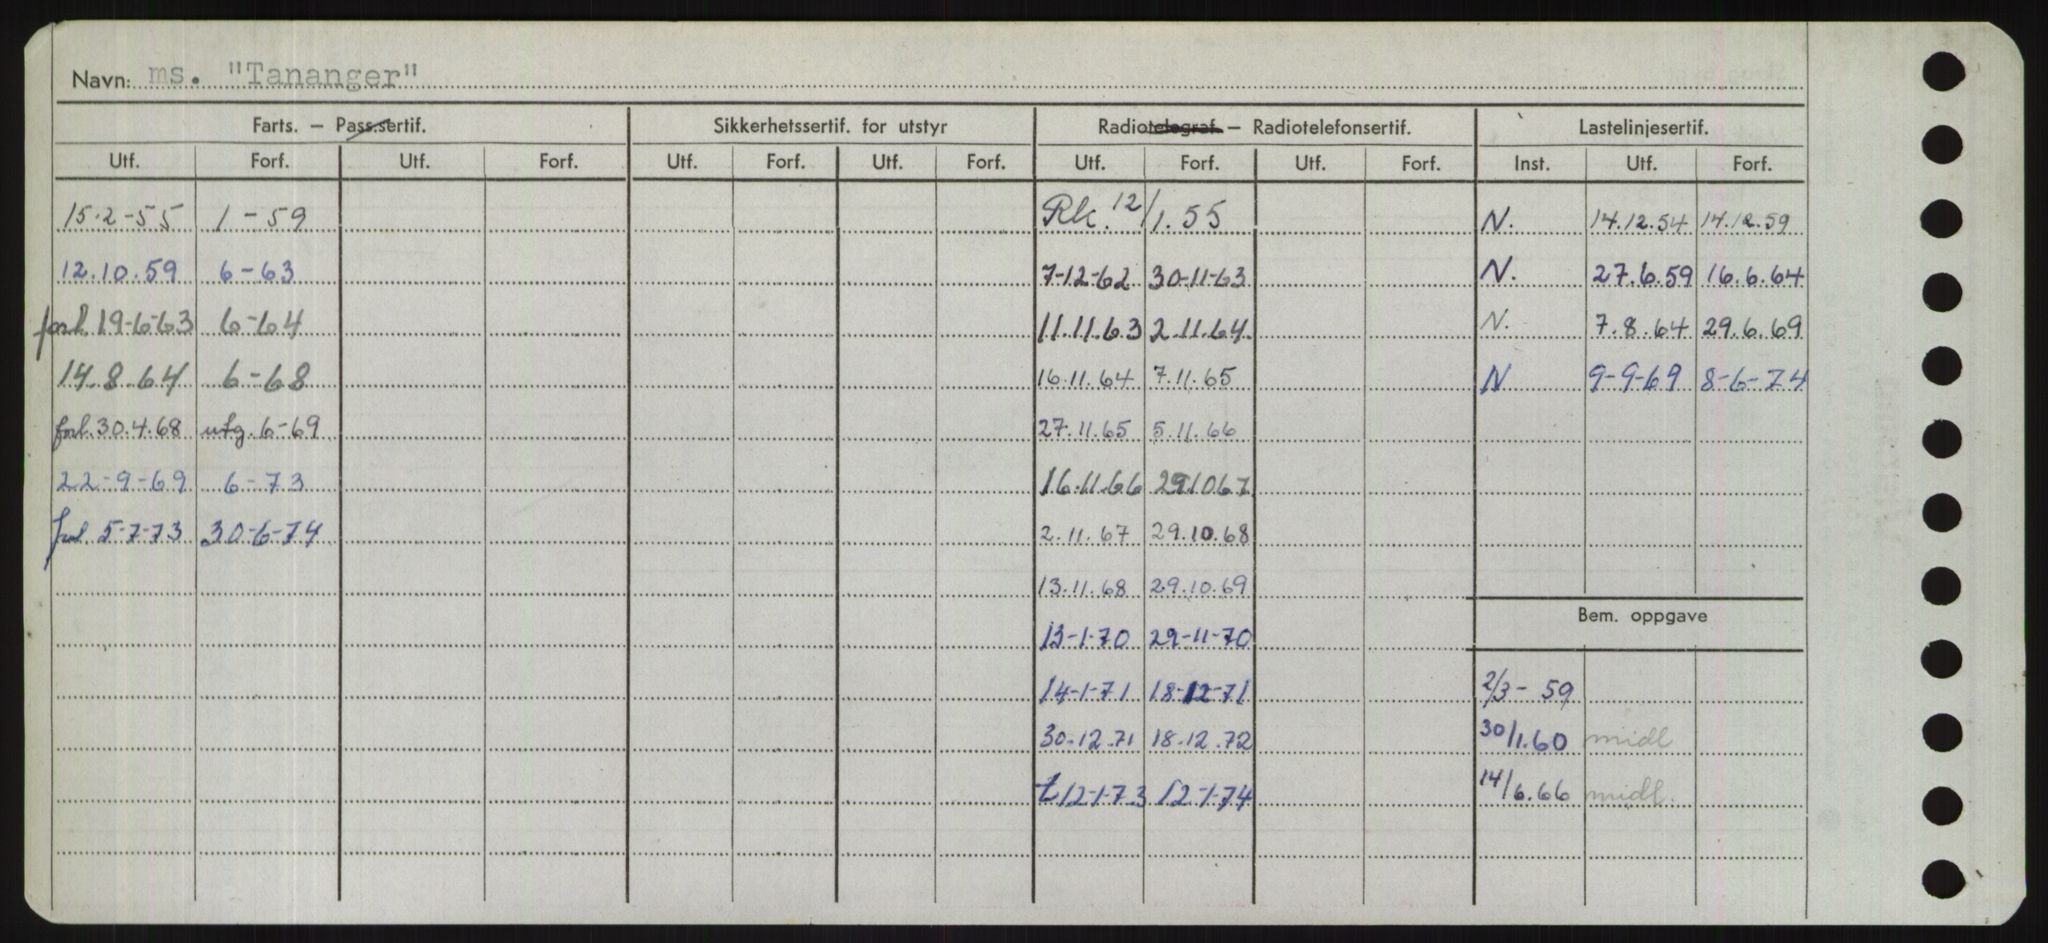 Navn: ms. "Tananger"
Farts. — Pass.sertif. Sikkerhetssertif. for utstyr Radiotelegraf — Radiotelefonsertif. Lastelinjesertif.
Utf. Forf. Utf. Forf. Utf. Forf. Utf. Forf. Utf. Forf. Utf. Forf. Inst. Utf. Forf.
15.2-55 1-59 Rk. 12/1.55 N. 14.12.54 14.12.59
12.10.59 6-63 7-12-62 30-11-63 N. 27.6.59 16.6.64
forl. 19-6-63 6-64 11.11.63 2.11.64. N. 7.8.64 29.6.69
14.8.64 6-68 16.11.64 7.11.65 N 9-9-69 8-6-74
forl. 30.4.68 utg. 6-69 27.11.65 5.11.66
22-9-69 6-73 16.11.66 29.10.67
forl. 5-7-73 30-6-74 2.11.67 29.10.68
13.11.68 29.10.69
Bem. oppgave
13-1-70 29-11-70
14-1-71 18-12-71 2/3-59
30-12.71 18.12.72 30/1.60 midl
t 12-1-73 12-1-74 14/6.66 midl.